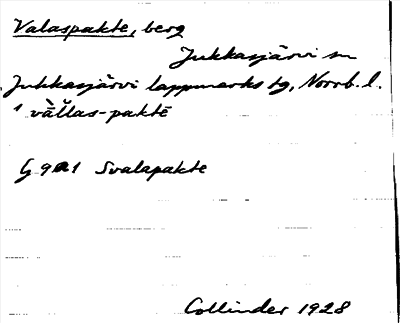 Valaspakte, berg
Jukkasjärvi sn
Jukkasjärvi lappmarks tg, Norrb. l.
1 vàllas-paktē
G 9a1 Svalapakte
Collinder 1928